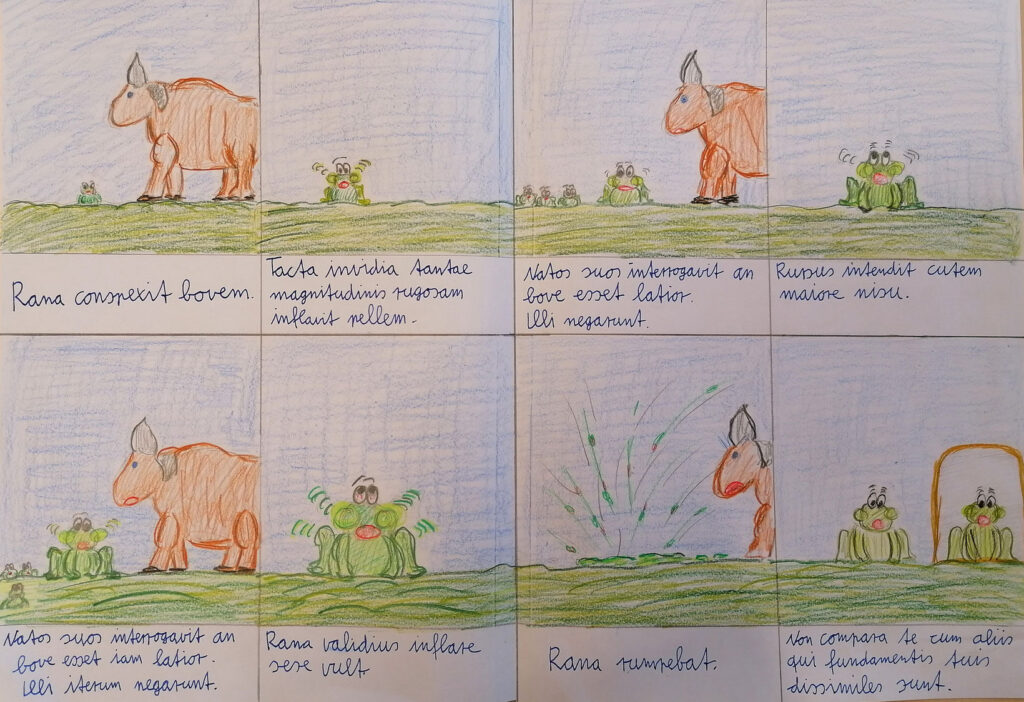 Rana conspexit bovem.
Tacta invidia tantae
magnitudinis rugosam
inflavit pellem.
Natos suos interrogavit an
bove esset latior.
Illi negarunt.
Rursus intendit cutem
maiore nisu.
Natos suos interrogavit an
bove esset iam latior.
Illi iterum negarunt.
Rana validius inflare
sese vult.
Rana rumpebat.
Non compara te cum aliis
qui fundamentis tuis
dissimiles sunt.